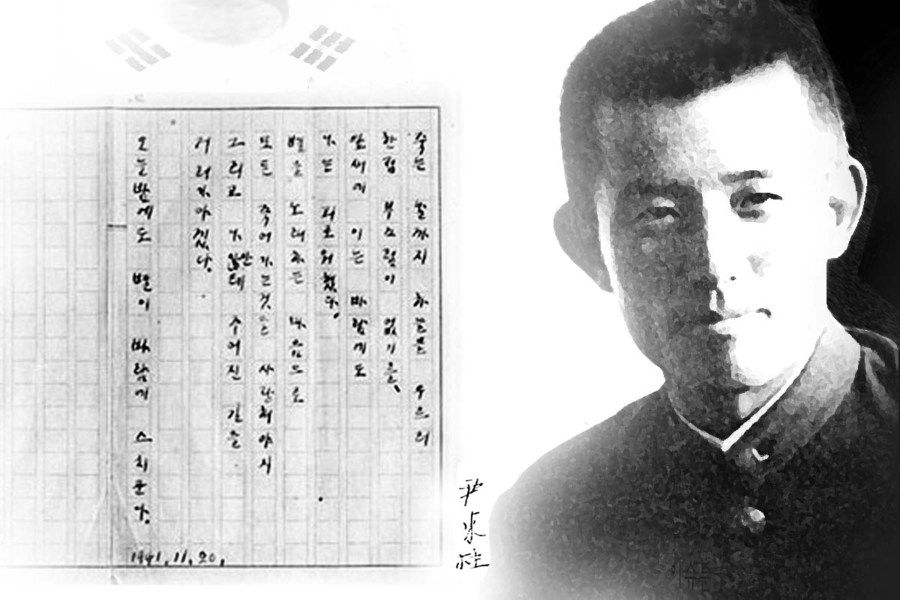 죽는 날까지 하늘을 우르러
한점 부끄럼이 없기를、
잎새에 이는 바람에도
나는 괴로워했다.
별을 노래하는 마음으로
모든 죽어가는것을 사랑해야지
그리고 나안테 주어진 길을
거러가야겠다.
오늘밤에도 별이 바람에 스치운다.
1941.11.20.
尹東柱